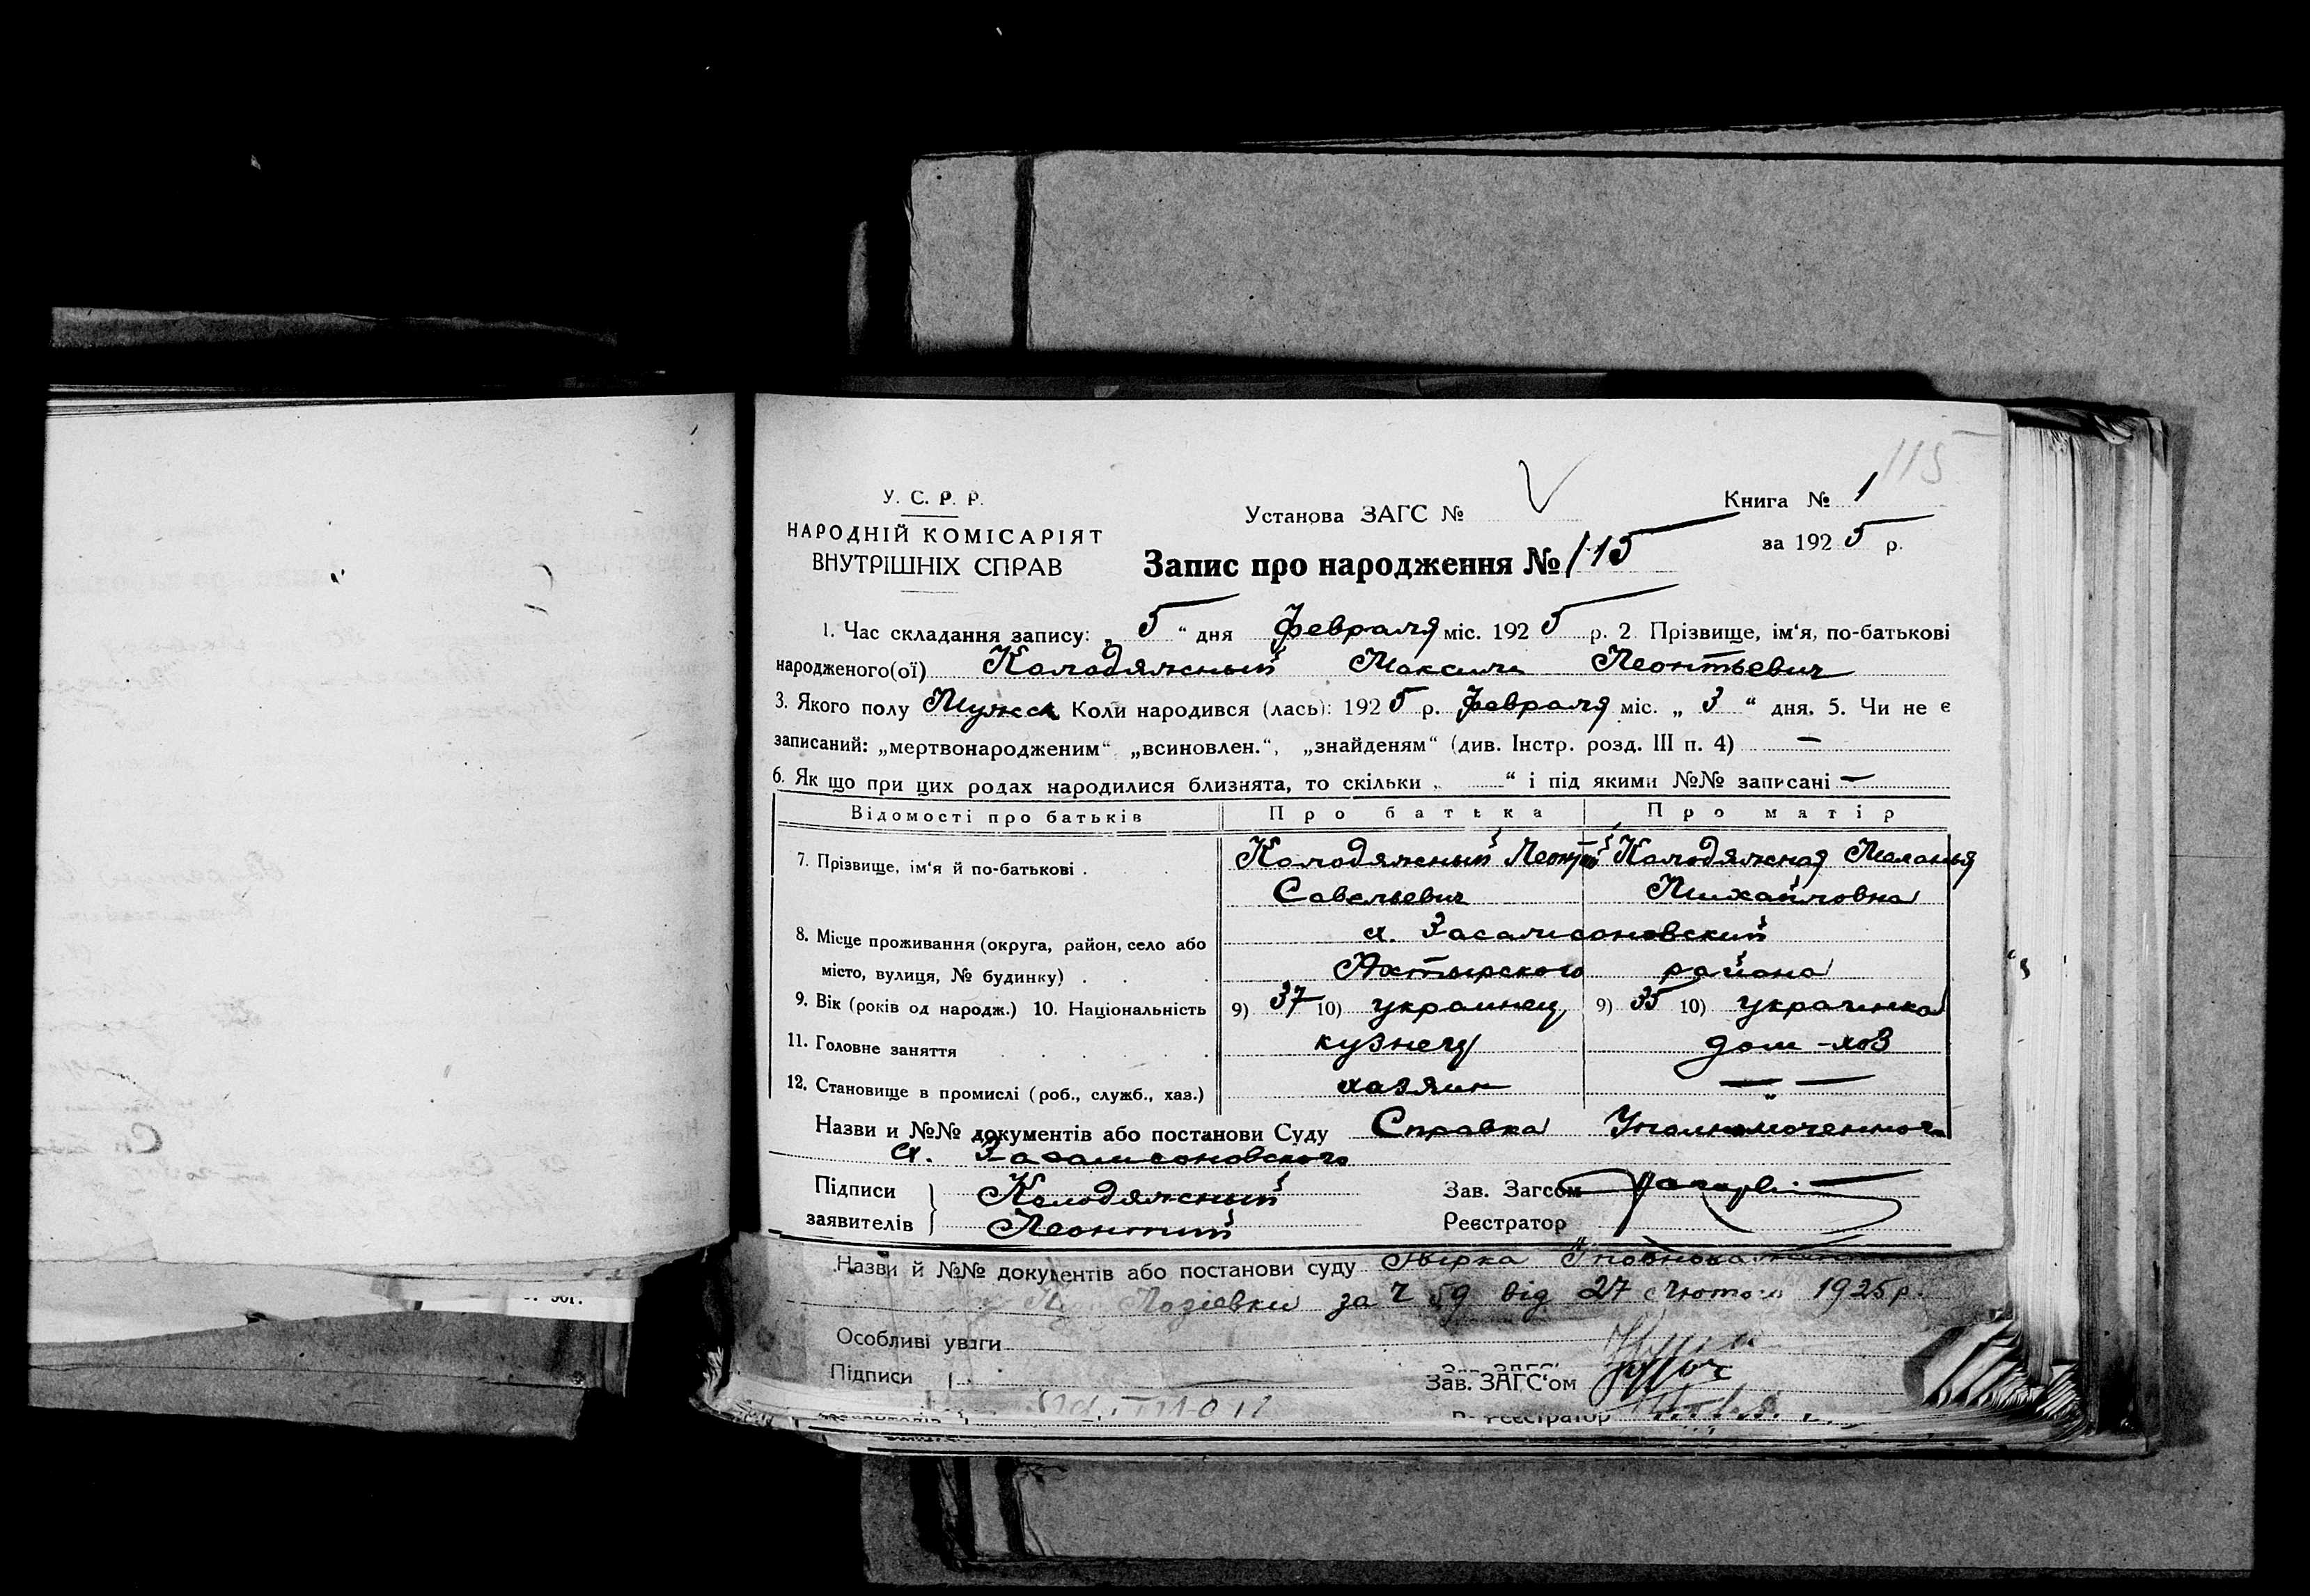 115
У. С. Р. Р.
НАРОДНІЙ КОМІСАРІЯТ
ВНУТРІШНІХ СПРАВ
Установа ЗАГС №
Книга № 1
за 1925 р.
Запис про народження № 115
1. Час складання запису: „ 5 “ дня Февраля міс. 1925 р. 2. Прізвище, ім‘я, по-батькові
народженого(ої) Колодяжный Максим Леонтьевич
3. Якого полу Мужск Коли народився (лась): 1925 р. Февраля міс. „ 3 “ дня. 5. Чи не є
записаний: „мертвонародженим“ „всиновлен.“, „знайденям“ (див. Інстр. розд. III п. 4) —
6. Як що при цих родах народилися близнята, то скільки „ “ і під якими №№ записані —
Відомості про батьків Про батька Про матір
7. Прізвище, ім‘я й по-батькові . Колодяжный Леонтий Колодяжная Меланья
Савельевич Михайловна
8. Місце проживання (округа, район, село або х. Засамсоновский
місто, вулиця, № будинку) . Ахтырского района
9. Вік (років од народж.) 10. Національність 9) 37 10) украинец 9) 35 10) украинка
11. Головне заняття кузнец дом-хоз
12. Становище в промислі (роб., служб., хаз.) хазяин — —
Назви и №№ документів або постанови Суду Справка Уполномоченного
х. Засамсоновского
Підписи Колодяжный Зав. Загсом
заявителів Леонтий Реєстратор
Назви й №№ документів або постанови суду
за Ч 59 від 27 Лютого 1925 р.
Особливі уваги
Підписи
Зав. ЗАГС‘ом
Реєстратор